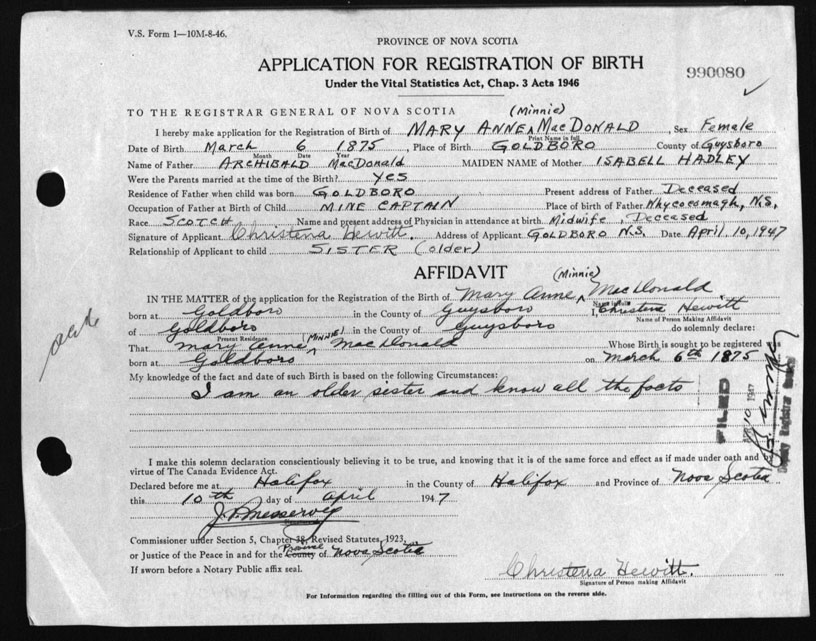 V.S. Form 1—10M-8-46.
PROVINCE OF NOVA SCOTIA
APPLICATION FOR REGISTRATION OF BIRTH
990080
Under the Vital Statistics Act, Chap. 3 Acts 1946
TO THE REGISTRAR GENERAL OF NOVA SCOTIA (Minnie)
I hereby make application for the Registration of Birth of MARY ANNE MacDONALD, Sex Female
Print Name in full
Date of Birth March 6 1875, Place of Birth GOLDBORO County of Guysboro
Month Date Year
Name of Father ARCHIBALD MacDonald MAIDEN NAME of Mother ISABELL HADLEY
Were the Parents married at the time of the Birth? YES
Residence of Father when child was born GOLDBORO Present address of Father Deceased
Occupation of Father at Birth of Child MINE CAPTAIN Place of birth of Father Whycocomagh, N.S.
Race SCOTCH Name and present address of Physician in attendance at birth Midwife Deceased
Signature of Applicant Christena Hewitt. Address of Applicant GOLDBORO N.S. Date April 10, 1947
Relationship of Applicant to child SISTER (older)
AFFIDAVIT
(Minnie)
IN THE MATTER of the application for the Registration of Birth of Mary Anne MacDonald
Name in full
born at Goldboro in the County of Guysboro I, Christena Hewitt
Name of Person Making Affidavit
of Goldboro in the County of Guysboro do solemnly declare:
Present Residence
That Mary Anne (MINNIE) MacDonald Whose Birth is sought to be registered
born at Goldboro on March 6th 1875
My knowledge of the fact and date of such Birth is based on the following Circumstances:
I am an older sister and know all the facts
FILED
10 1947
Deputy Registrar General
I make this solemn declaration conscientiously believing it to be true, and knowing that it is of the same force and effect as if made under oath and by
virtue of The Canada Evidence Act.
Declared before me at Halifax in the County of Halifax and Province of Nova Scotia
this 10th day of April 1947
Commissioner under Section 5, Chapter 38, Revised Statutes, 1923,
or Justice of the Peace in and for the County of Nova Scotia
If sworn before a Notary Public affix seal.
Christena Hewitt.
Signature of Person making Affidavit
For Information regarding the filling out of this Form, see instructions on the reverse side.